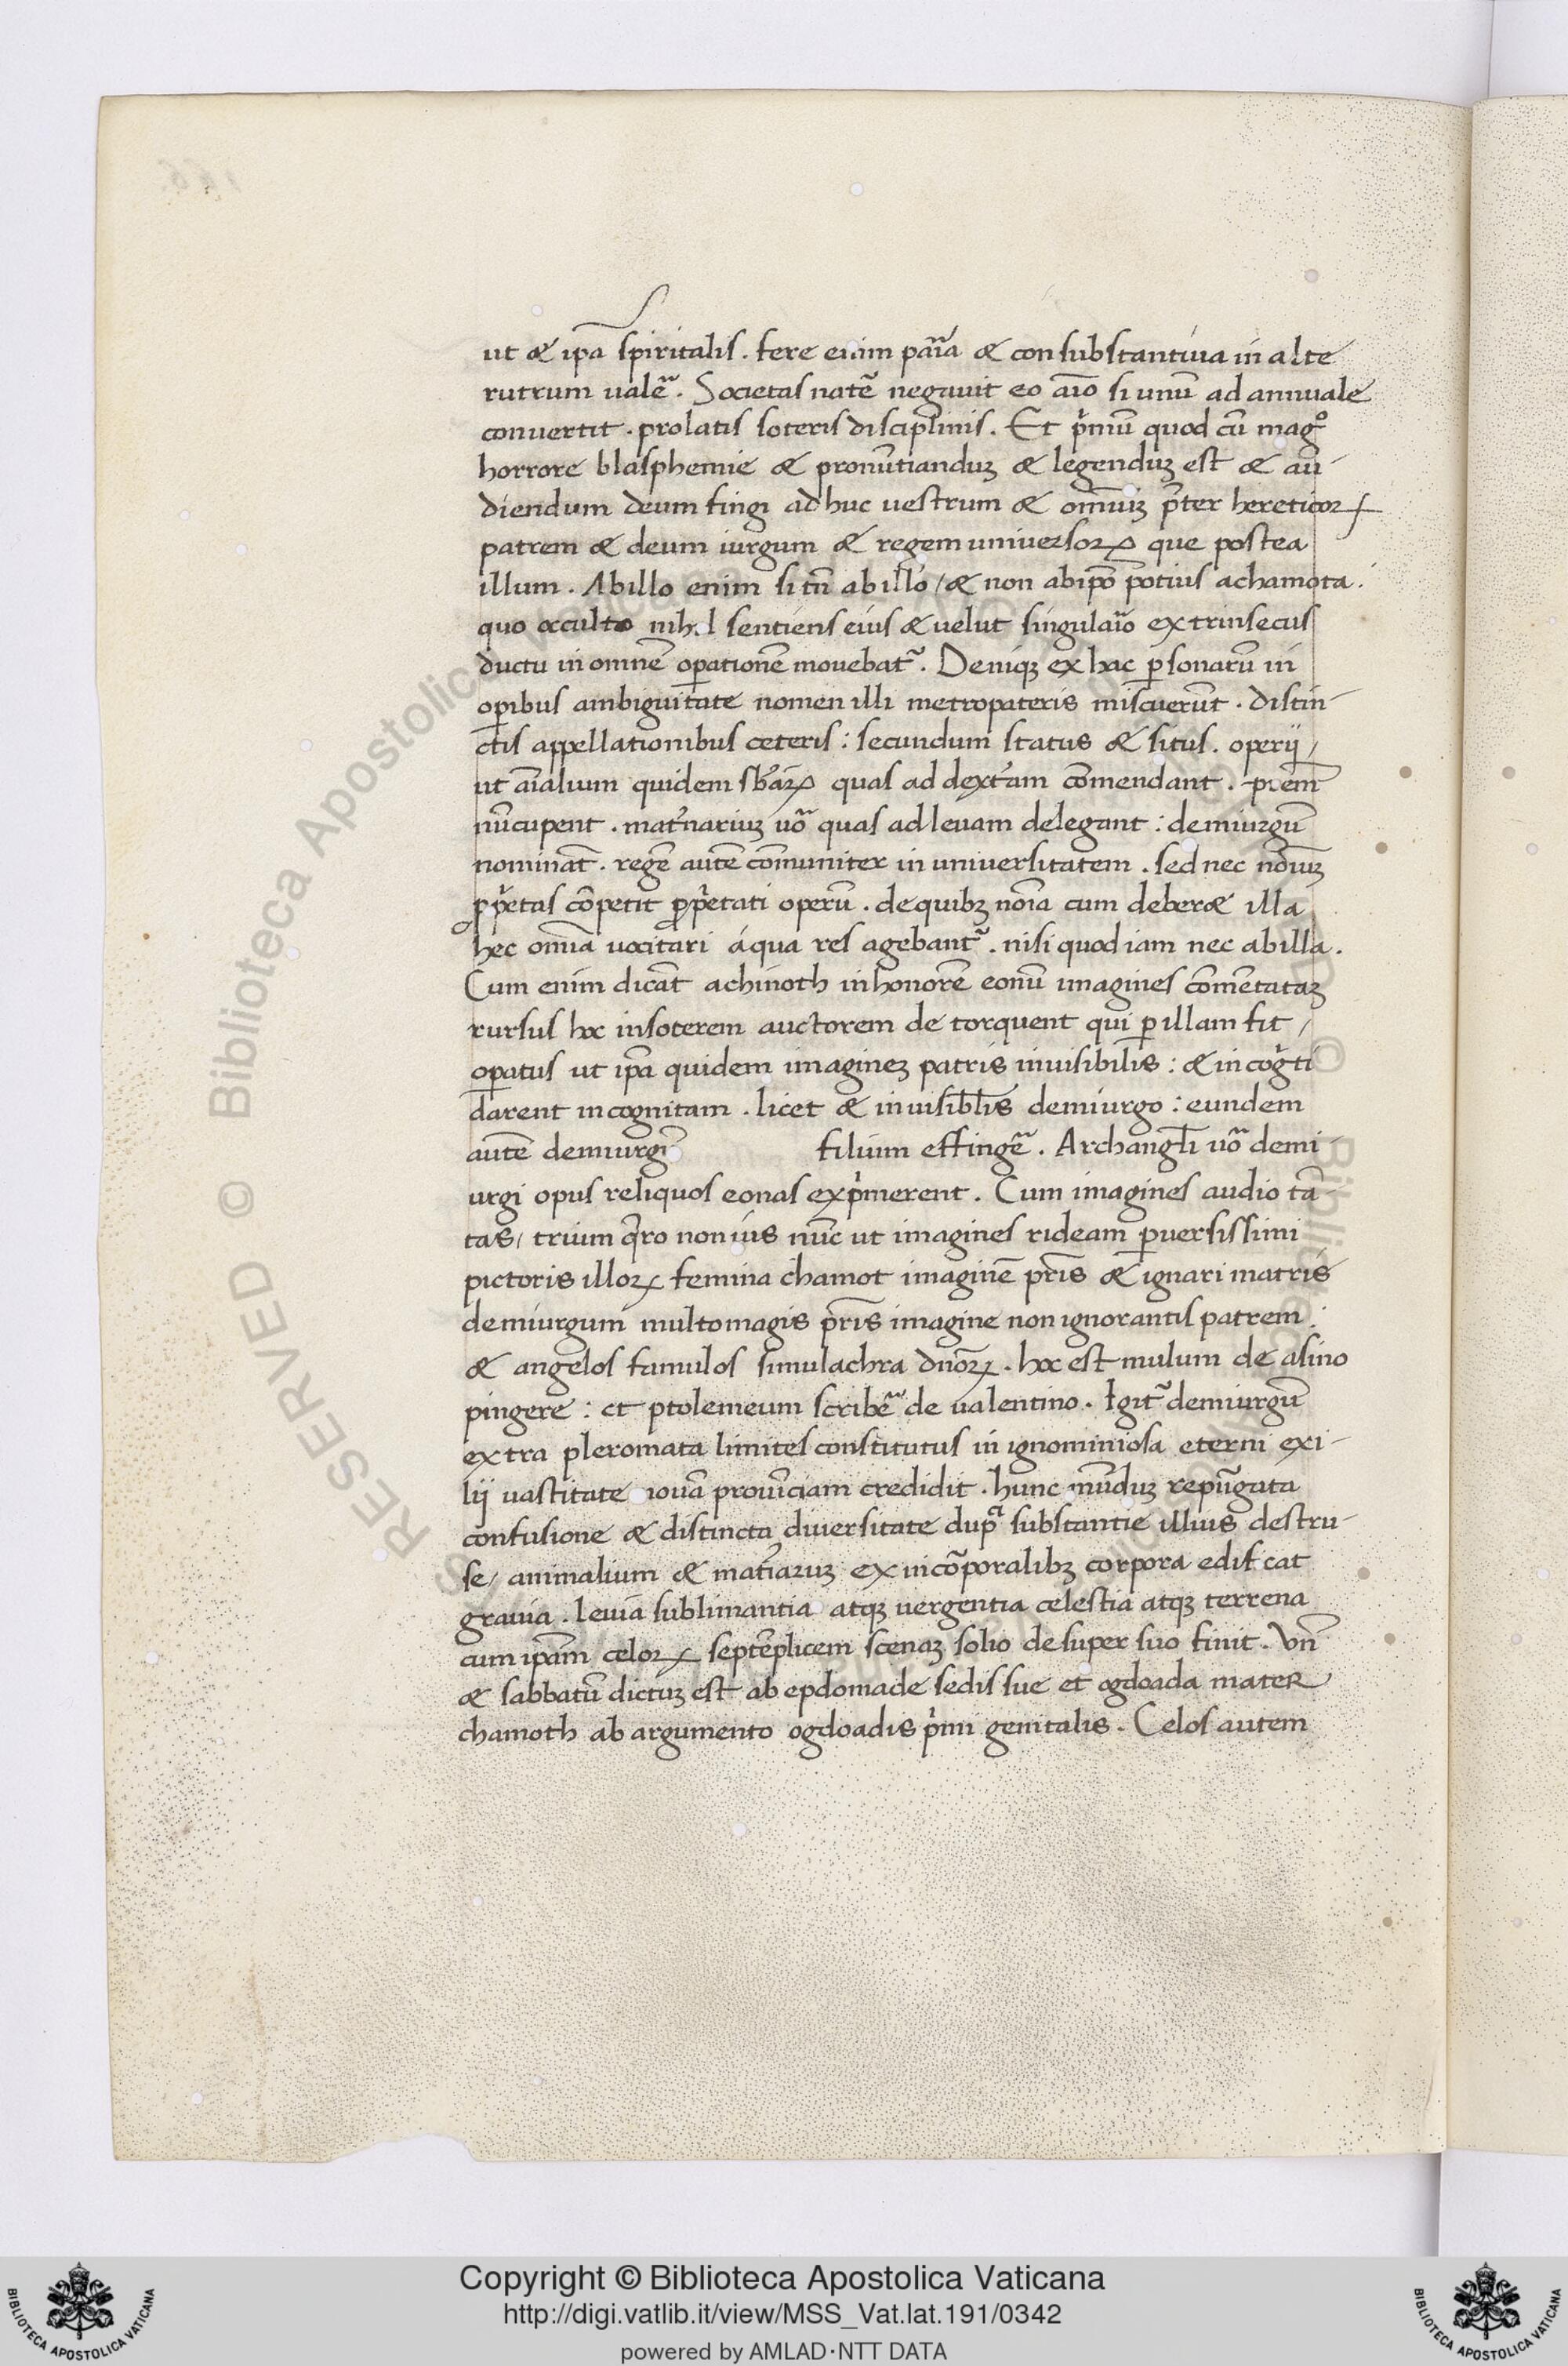 ut & ip̄a spiritalis. fere enim par̄ia & consubstantiva in alte
rutrum valē̃. Societas natē̃ negavit eo aīo si unū ad annuale
convertit. prolatis soteris disciplinis. Et pͥmū quod cū magͦ
horrore blasphemie & pronūtianduꝫ & legenduꝫ est & au-
diendum deum fingi ad huc vestrum & omniuꝫ p̄ter hereticoꝝ
patrem & deum iurgum & regem universoꝝ que postea
illum. Ab illo enim si tn̄ ab illo / & non ab ip̄o potius achamota.
quo occulto nihil sentiens eius & velut singulaīo extrinsecus
ductu in omnē oꝑationē movebat᷑. Deniqꝫ ex hac ꝑsonarū in
oꝑibus ambiguitate nomen illi metropateris miscuerūt. distin-
ctis appellationibus ceteris: secundum status & situs. operij /
ut aīalium quidem sb̄aꝝ quas ad dextͣam cōmendant. pr̄em
nūcupent. mat͛nariuꝫ vͦo quas ad levam delegant: demiurgū
nomināt. regē autē cōmuniter in universitatem. sed nec noīuꝫ
ꝓpͥetas cōpetit ꝓpͥetati operū. de quibꝫ noīa cum deber& illa
hec omīa vocitari á qua res agebant᷑. nisi quod iam nec ab illa.
Cum enim dicāt achinoth in honorē eonū imagines cōmētataꝫ
rursus hoc in soterem auctorem de torquent qui ꝑ illam fit /
oꝑatus ut ip̄a quidem imagineꝫ patris invisibilis: & incogͥti
darent incognitam. licet & invisibl̄is demiurgo: eundem
autē demiurgū filium effingē̃. Archangl̄i vͦo demi-
urgi opus reliquos eonas expͥmerent. Cum imagines audio tā-
tas / trium q̄ro non ius nūc ut imagines rideam ꝑversissimi
pictoris illoꝝ femina chamot imaginē pr̄is & ignari matris
demiurgum multomagis pr̄is imagine non ignorantis patrem:
& angelos famulos simulachra dn̄oꝝ. hoc est mulum de asino
pingere: et ptolemeum scribē̃ de valentino. Igit᷑ demiurgū
extra pleromata limites constitutus in ignominiosa eterni exi-
lij vastitate novā provīciam credidit. hunc mūduꝫ repu᷑gata
confusione & distincta diversitate dupͣ substantie illius destru-
se / animalium & mat͛iaruꝫ ex incōꝑoralibꝫ corpora edificat
gravia. levia sublimantia atqꝫ vergentia celestia atqꝫ terrena
cum ip̄am celoꝝ septēplicem scenaꝫ solio desuper suo finit. Vn̄
& sabbatū dictuꝫ est ab epdomade sedis sue et ogdoada mater
chamoth ab argumento ogdoadis pͥmi genitalis. Celos autem
RESERVED © Biblioteca Apostolica Vaticana
Copyright © Biblioteca Apostolica Vaticana
http://digi.vatlib.it/view/MSS_Vat.lat.191/0342
powered by AMLAD·NTT DATA
BIBLIOTECA APOSTOLICA VATICANA
BIBLIOTECA APOSTOLICA VATICANA